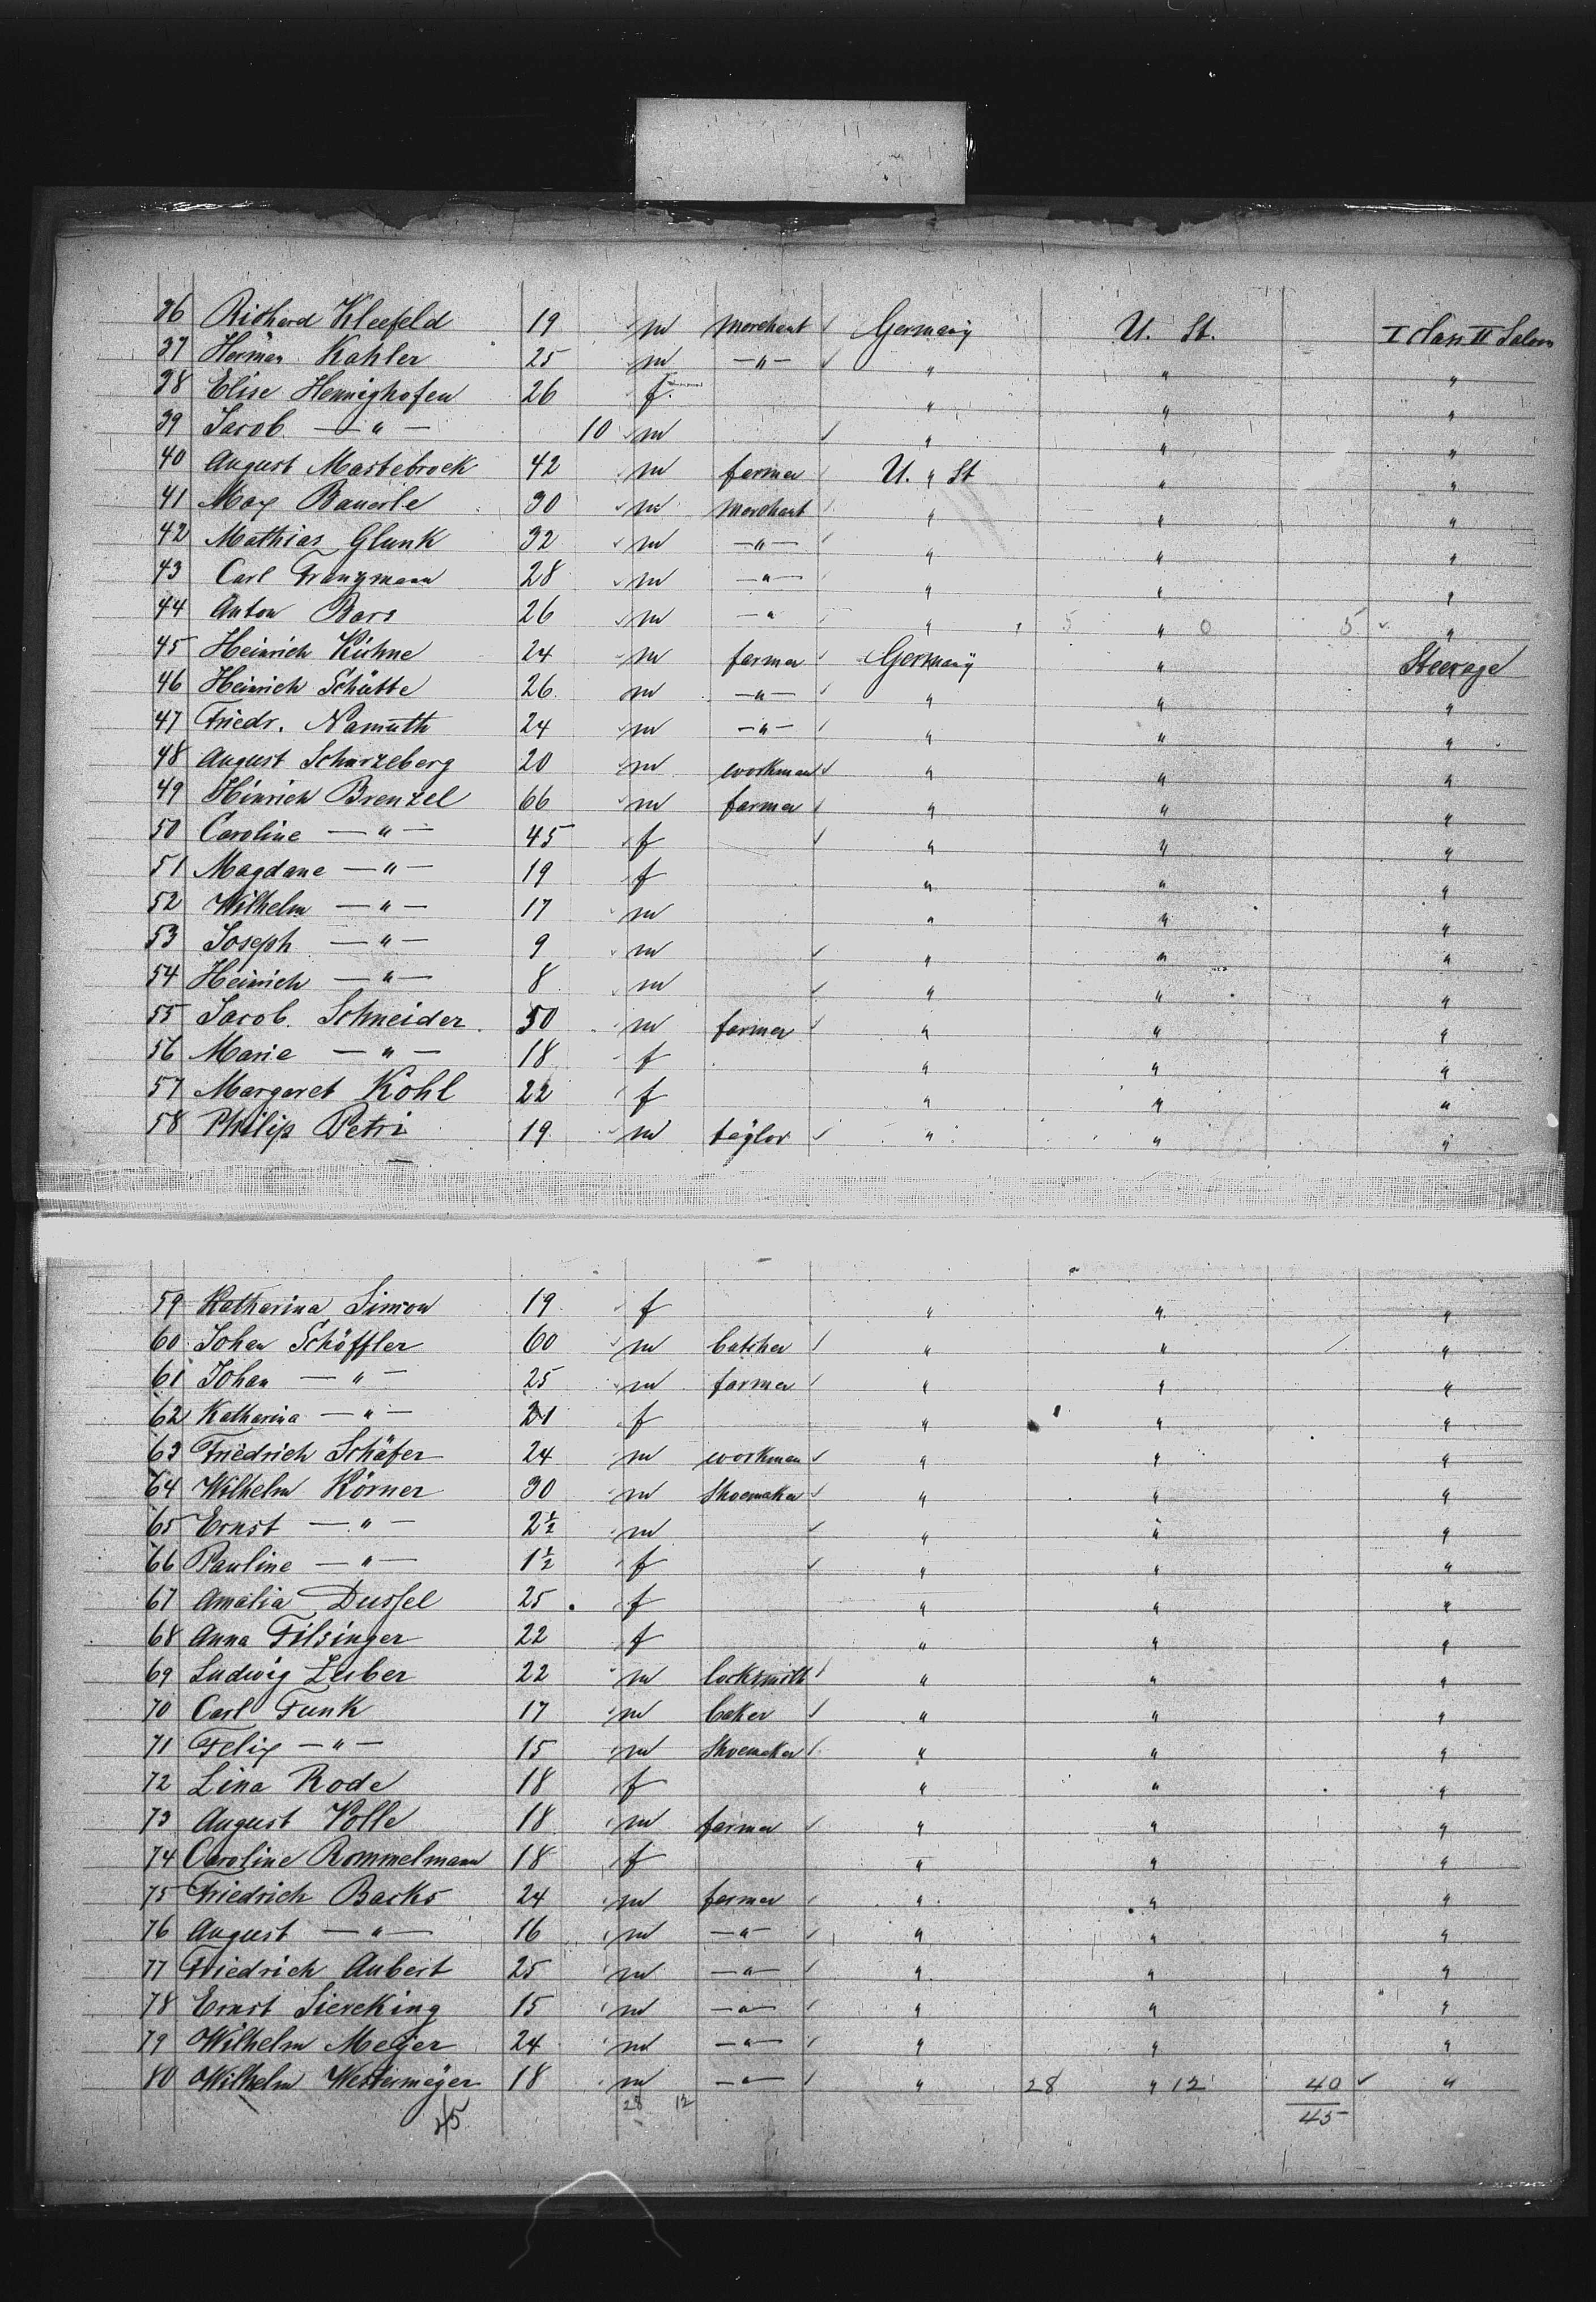 36 Richard Kleefeld 19 m merchant Germany U. St. I Class II Saloon
37 Herman Kahler 25 m —"— " " "
38 Elise Hennighofen 26 f. " " "
39 Jacob —"— 10 m " " "
40 August Mastebroek 42 m farmer U. " St " "
41 Max Bauerle 30 m merchant " " "
42 Mathias Glunk 32 m —"— " " "
43 Carl Franzmann 28 m —"— " " "
44 Anton Bars 26 m —" " 5 " 0 5 "
45 Heinrich Kühne 24 m farmer Germany " Steerage
46 Heinrich Schütte 26 m —"— " " "
47 Friedr. Namuth 24 m —"— " " "
48 August Scharzeberg 20 m workman " " "
49 Hinrich Brenzel 66 m farmer " " "
50 Caroline —"— 45 f " " "
51 Magdane —"— 19 f " " "
52 Wilhelm —"— 17 m " " "
53 Joseph —"— 9 m " " "
54 Heinrich —"— 8 m " " "
55 Jacob. Schneider 50 m farmer " " "
56 Marie —"— 18 f " " "
57 Margaret Kohl 22 f " " "
58 Philip Petri 19 m taylor " " "
59 Katharina Simon 19 f " " "
60 Johan Schöffler 60 m butcher " " "
61 Johan —"— 25 m farmer " " "
62 Katharina —"— 21 f " " "
63 Friedrich Schäfer 24 m workman " " "
64 Wilhelm Körner 30 m Shoemaker " " "
65 Ernst —"— 2½ m " " "
66 Pauline —"— 1½ f " " "
67 Amalia Dussel 25 f " " "
68 Anna Filsinger 22 f " " "
69 Ludwig Luber 22 m locksmith " " "
70 Carl Funk 17 m baker " " "
71 Felix —"— 15 m Shoemaker " " "
72 Lina Rode 18 f " " "
73 August Volle 18 m farmer " " "
74 Caroline Rommelmann 18 f " " "
75 Friedrich Backs 24 m farmer " " "
76 August —"— 16 m —"— " " "
77 Friedrich Aubert 25 m —"— " " "
78 Ernst Sieveking 15 m —"— " " "
79 Wilhelm Meÿer 24 m —"— " " "
80 Wilhelm Westermeÿer 18 m —"— " 28 " 12 40 "
45 28 12 45